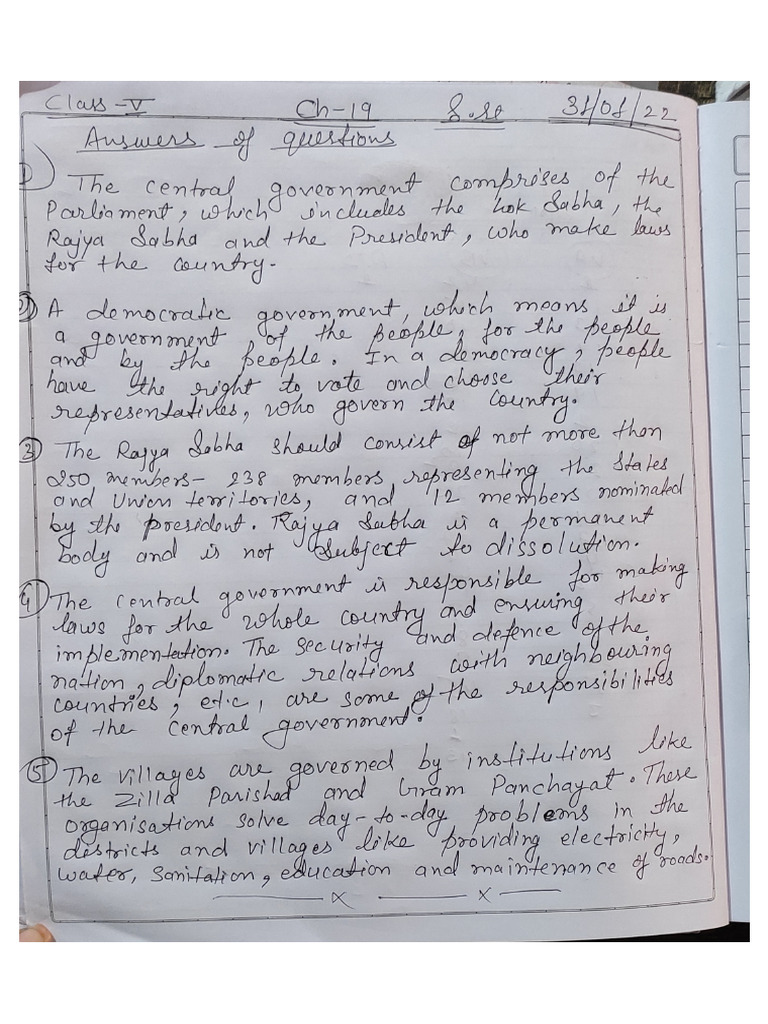 Class-V Ch-19 S.st 31/01/22
Answers of questions
1) The central government comprises of the
Parliament, which includes the Lok Sabha, the
Rajya Sabha and the President, who make laws
for the country.
2) A democratic government, which means it is
a government of the people, for the people
and by the people. In a democracy, people
have the right to vote and choose their
representatives, who govern the country.
3) The Rajya Sabha should consist of not more than
250 members- 238 members representing the States
and Union territories, and 12 members nominated
by the president. Rajya Sabha is a permanent
body and is not Subject to dissolution.
4) The central government is responsible for making
laws for the whole country and ensuring their
implementation. The security and defence of the
nation, diplomatic relations with neighbouring
countries, etc, are some of the responsibilities
of the central government.
5) The villages are governed by institutions like
the Zilla Parishad and Gram Panchayat. These
organisations solve day-to-day problems in the
districts and villages like providing electricity,
water, sanitation, education and maintenance of roads.
x x